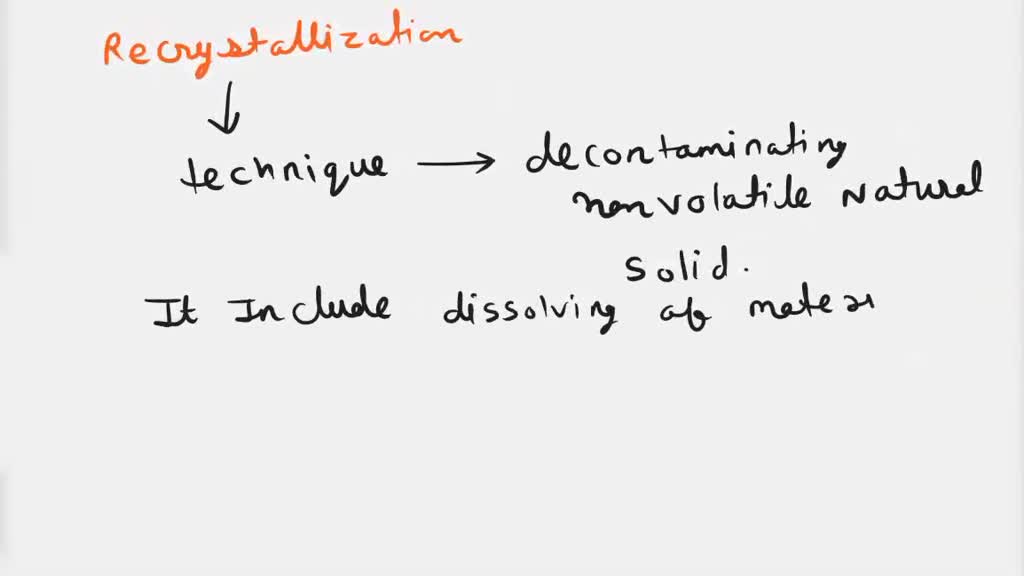 Recrystallization
technique → decontaminating
nonvolatile Natural
solid.
It Include dissolving of mater